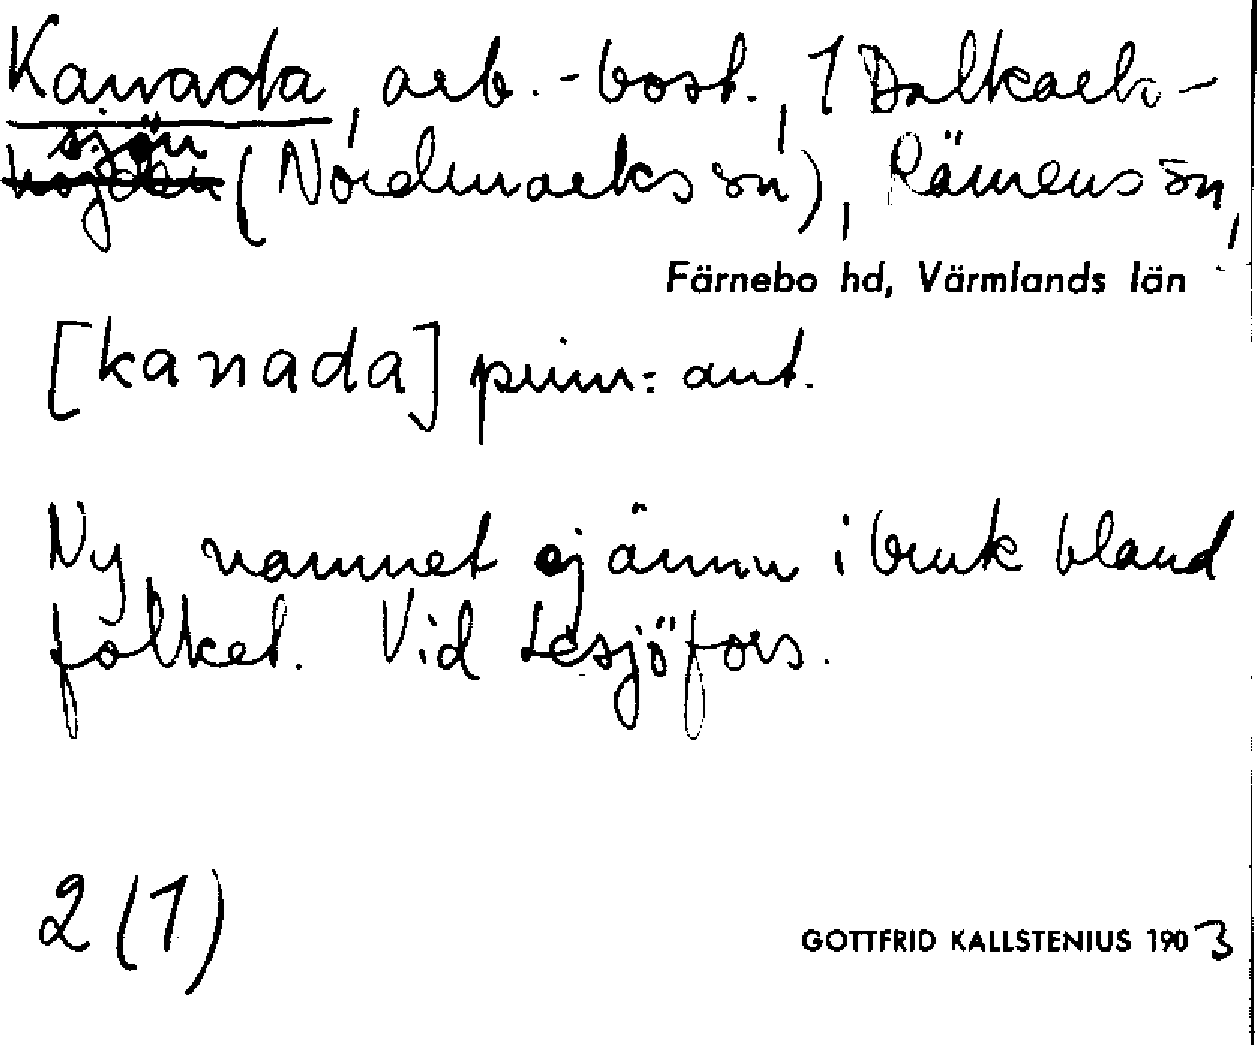 Kanada, arb.-bost., 1 Dalkarls-
sjön
högden (Nordmarks sn), Rämens sn,
Färnebo hd, Värmlands län
[kanada] prim: ant.
Ny, namnet ej ännu i bruk bland
folket. Vid Lesjöfors.
2 (1)
GOTTFRID KALLSTENIUS 1903